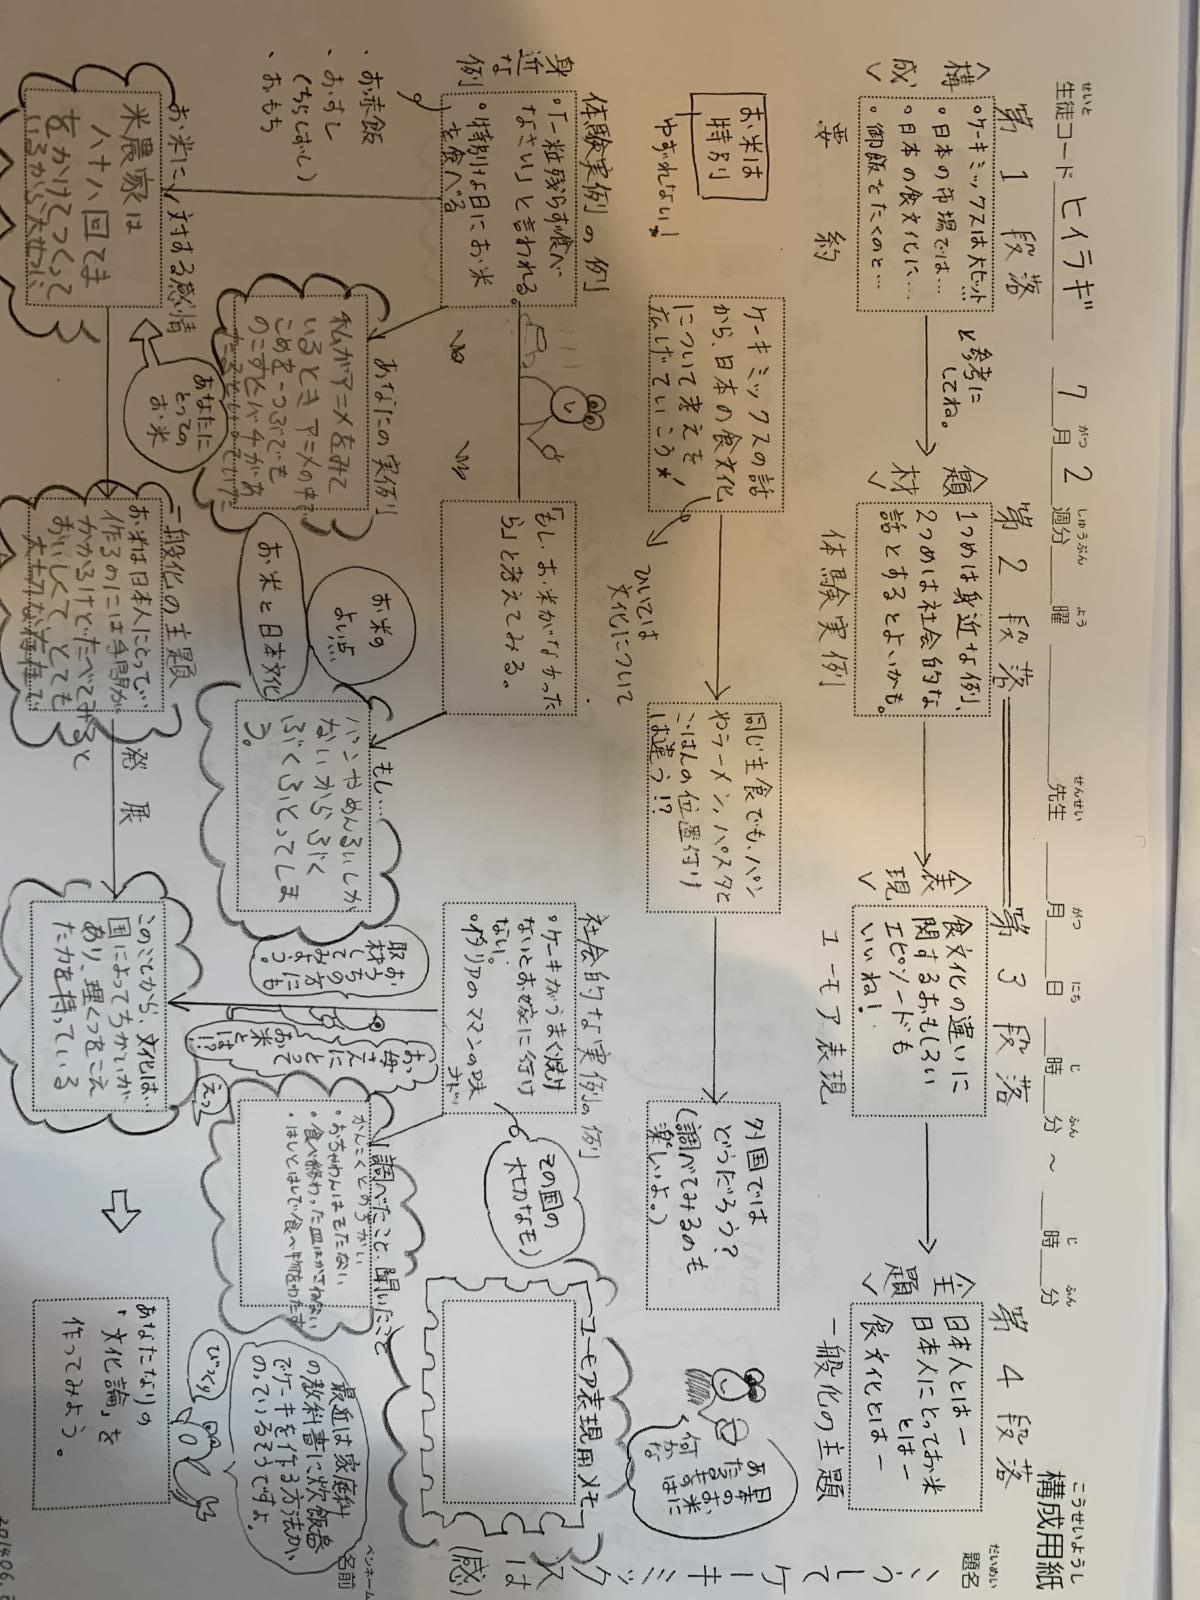 構成用紙
こうせいようし
生徒コード ヒイラギ 7月2週分 曜 先生 月 日 時 分 ～ 時 分
せいと がつ しゅうぶん よう せんせい がつ にち じ ふん じ ふん
題名
だいめい
こうして
ケーキミック
スは (感)
ペンネーム
名前
第1段落
<構成>
・ケーキミックスは大ヒット…
・日本の市場では…
・日本の食文化に…
・御飯をたくのと…
要約
と参考に
してね。
第2段落
<題材>
1つめは身近な例、
2つめは社会的な
話とするとよいかも。
体験実例
第3段落
<表現>
食文化の違いに
関するおもしろい
エピソードも
いいね！
ユーモア表現
第4段落
<主題>
日本人とは―
日本人にとってお米
とは―
食文化とは―
一般化の主題
お米は
特別
ゆずれない！
ケーキミックスの話
から、日本の食文化
について考えを
広げていこう
ひいては
文化について
同じ主食でも、パン
やラーメン、パスタと
ごはんの位置付け
は違う!?
外国では
どうだろう？
(調べてみるのも
楽しいよ。)
体験実例の例
身近な例
・「一粒残らず食べ
なさい」と言われる。
・特別な日にお米
を食べる
・お赤飯
・おすし
(ちらしずし)
・おもち
「もし、お米がなかった
ら」と考えてみる。
社会的な実例の例
・ケーキがうまく焼け
ないとお嫁に行け
ない。
・イタリアのマンマの味
ナド…
その国の
大切なモノ
ユーモア表現用メモ
あなたの実例
私がアニメをみて
いるときアニメの中で
こめを一つぶでも
のこすとバチがあ
お米の
よい点…
お米と日本文化
もし…
パンやめんるいしか
ないからぶく
ぶくふとってしま
う。
取材は
お母さんに
とって
お米とは!?
えっ
調べたこと、聞いたこと
かんこくとのちがい
・おちゃわんはもたない
・食べ終わった皿はかさねない
・はしとはしで食べ物をわたす
最近は家庭科
の教科書に炊飯器
でケーキを作る方法が
のっているそうですよ。
びっくり
お米に対する感情
米農家は
八十八回てま
をかけてつくって
いるから大せつに
あなたに
とっての
お米
一般化の主題
お米は日本人にとって
作るのには手間が
かかるけどたべてみると
おいしくて とても
大切な存在で
発展
このことから、文化は…
国によってちがいが
あり、理くつをこえ
た力を持っている
あなたなりの
「文化論」を
作ってみよう。